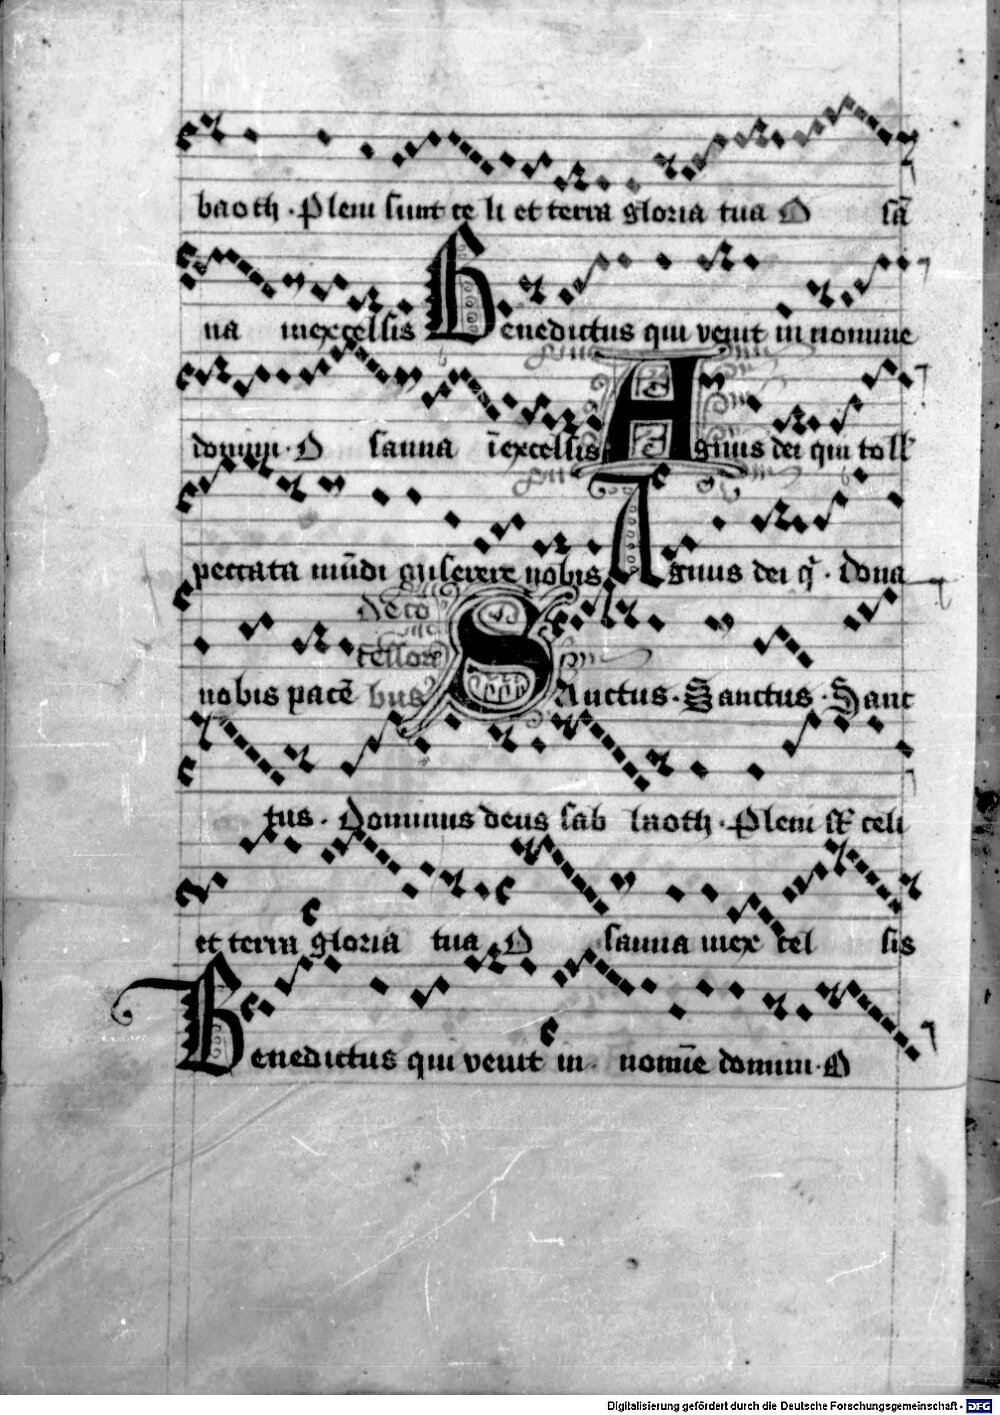 baoth · Pleni sunt ce li et terra gloria tua O sā
na inexcelsis Benedictus qui venit in nomine
domini · O sanna īexcelsis Agnus dei qui toll
peccata mūdi miserere nobis Agnus dei q̄ · dona
De co
fessori
nobis pacē bus Sanctus · Sanctus · Sanc
tus · Dominus deus sab baoth · Pleni st celi
et terra gloria tua O sanna inex cel sis
Benedictus qui venit in nomīe domini · O
Digitalisierung gefördert durch die Deutsche Forschungsgemeinschaft - DFG